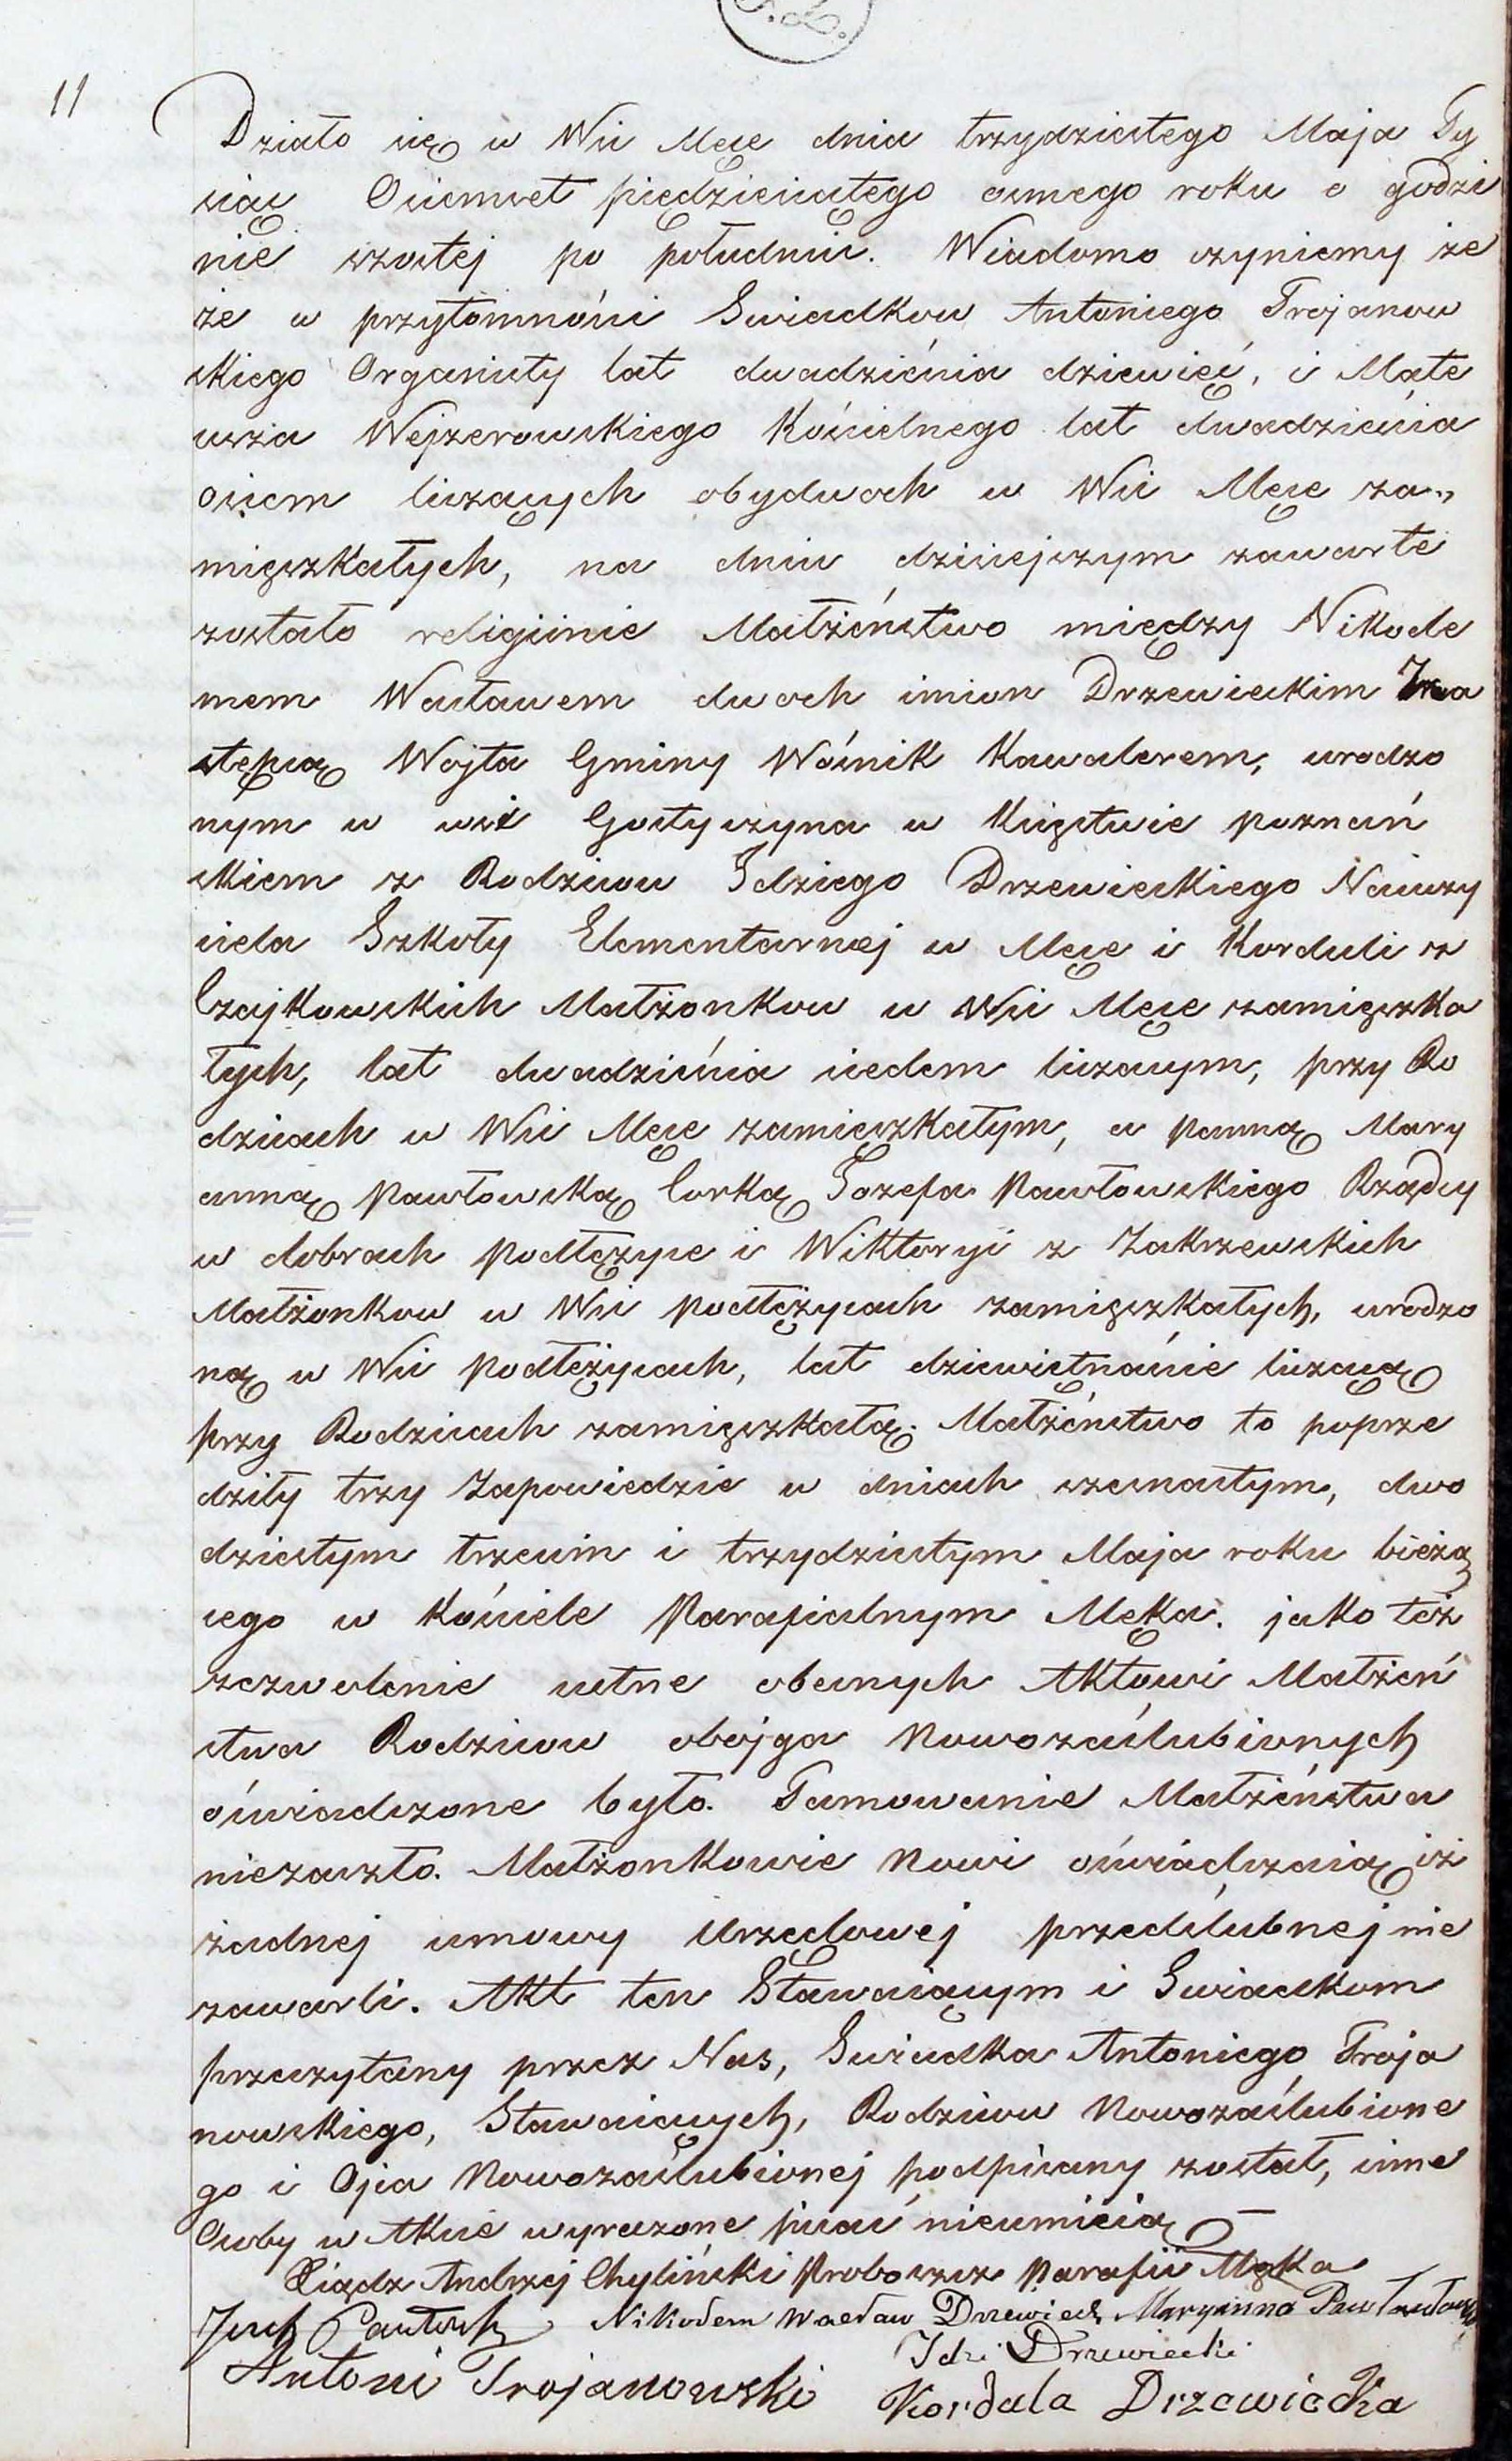 S.L.
11
Działo się w Wsi Męce dnia trzydziestego Maja Ty
siąc Ośiemset piędziesiątego osmego roku o godzi
nie szostej po południu. Wiadomo czyniemy że
że w przytomnóści Swiadkow Antoniego Trojanow
skiego Organisty lat dwadzieścia dziewięć, i Mate
usza Wejzerowskiego Kościelnego lat dwadzieścia
ośiem liczących obydwóch w Wsi Męce za„
mięszkałych, na dniu dzisiejszym zawarte
zostało religijnie Małżeństwo między Nikode
mem Wacławem dwóch imion Drzewieckim Za
stępcą Wójta Gminy Wośnik Kawalerem, urodzo
nym w wsi Gostyczyna w Księstwie poznań
skiem z Rodziców Idziego Drzewieckiego Nauczy
ciela Szkoły Elementarnej w Męce i Korduli z
Czajkowskich Małżonkow w Wsi Męce zamięszka
łych, lat dwadzieścia siedem liczącym, przy Ro
dzicach w Wsi Męce zamieszkałym, a panną Mary
anną Pawłowską Corką Jozefa Pawłowskiego Rządcy
w dobrach Podłężyce i Wiktoryi z Zakrzewskich
Małżonkow w Wsi Podłężycach zamięszkałych, urodzo
ną w Wsi Podłężycach, lat dziewiętnaście liczącą
przy Rodzicach zamięszkałą. Małżeństwo to poprze
dziły trzy Zapowiedzie w dniach szesnastym, dwo
dziestym trzecim i trzydziestym Maja roku bieżą
cego w Kościele Parafialnym Męka. jako też
zezwolenie ustne obecnych Aktowi Małżeń
stwa Rodzicow obojga Nowozaślubionych
oświadczone było. Tamowanie Małżeństwa
niezaszło. Małżonkowie Nowi oświadczaią iż
żadnej umowy Urzędowej przedślubnej nie
zawarli. Akt ten Stawaiącym i Swiadkom
przeczytany przez Nas, Swiadka Antoniego Troja
nowskiego, Stawaiących, Rodzicow Nowozaślubione
go i Ojca Nowozaślubionej podpisany został, inne
Osoby w Akcie wyrażone pisać nieumieią
Xiądz Andrzej Chyliński Proboszcz Parafii Męka
Nikodem Wacław Drzewiecki Maryanna
Idzi Drzewiecki
Antoni Trojanowski Kordula Drzewiecka